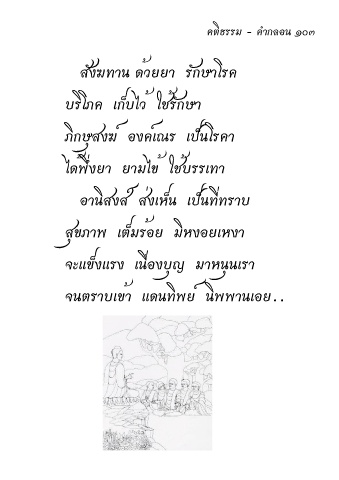 คติธรรม - คำกลอน ๑๐๓
สังฆทาน ด้วยยา รักษาโรค
บริโภค เก็บไว้ ใช้รักษา
ภิกษุสงฆ์ องค์เณร เป็นโรคา
ได้พึ่งยา ยามไข้ ใช้บรรเทา
อานิสงส์ ส่งเห็น เป็นที่ทราบ
สุขภาพ เต็มร้อย มิหงอยเหงา
จะแข็งแรง เนื่องบุญ มาหนุนเรา
จนตราบเข้า แดนทิพย์ นิพพานเอย..